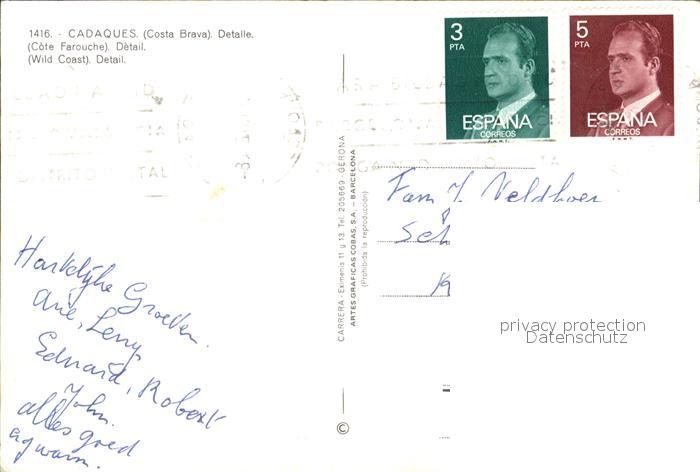 1416. - CADAQUES. (Costa Brava). Detalle.
(Côte Farouche). Dètail.
(Wild Coast). Detail.
3
PTA
ESPAÑA
CORREOS
5
PTA
ESPAÑA
CORREOS
POSTAL
CARRERA - Eximenis 11 y 13. Tel. 205669 - GERONA
ARTES GRAFICAS COBAS, S.A. - BARCELONA
(Prohibida la reproducción)
Fam J. Veldhoen
Sch
Hartelijke Groeten.
Arie, Leny,
Eduard, Robert
John.
alles goed
erg warm.
privacy protection
Datenschutz
©